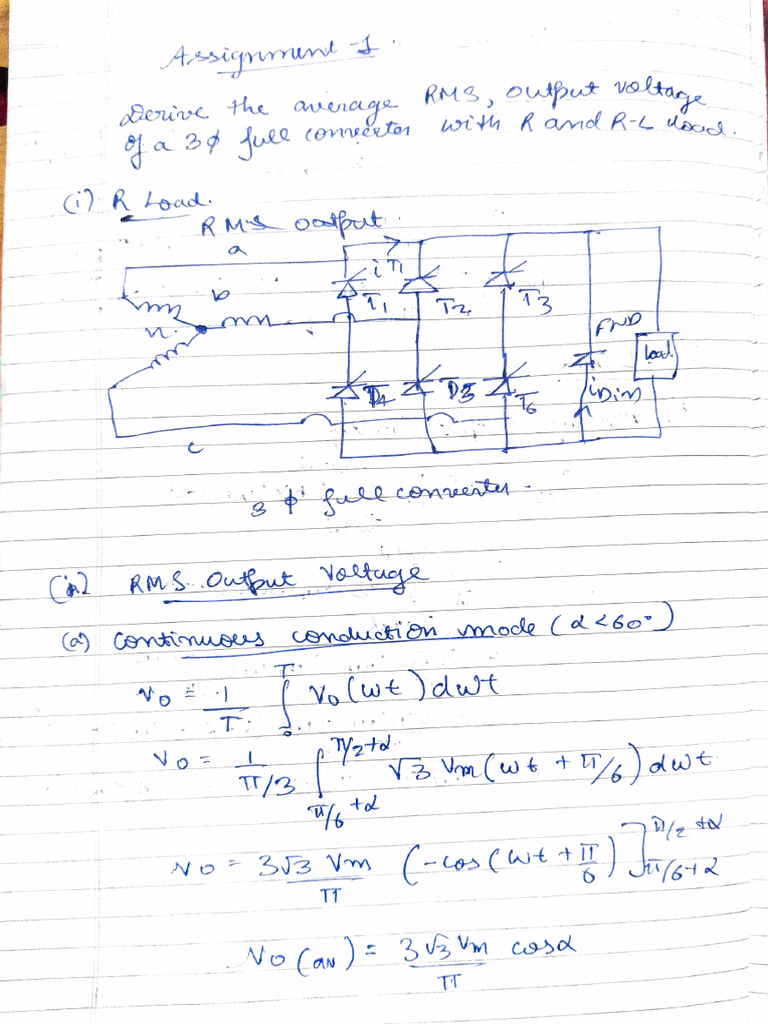 Assignment-1.
Derive the average RMS, output voltage
of a 3φ full converter with R and R-L load.
(i) R Load.
RMS output.
a
b
n
c
iT1
T1
T2
T3
FWD
Load.
T4
T6
3 φ full converter.
RMS Output Voltage
(a) Continuous conduction mode (α<60°)
Vo = 1/T ∫₀ᵀ Vo(ωt) dωt
Vo = 1/(π/3) ∫_{π/6+α}^{π/2+α} √3 Vm (ωt + π/6) dωt
Vo = 3√3 Vm/π (-cos(ωt + π/6)]_{π/6+α}^{π/2+α}
Vo(av) = 3√3 Vm/π cosα